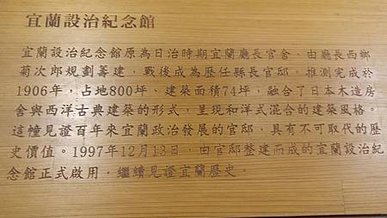 宜蘭設治紀念館
宜蘭設治紀念館原為日治時期宜蘭廳長官舍,由廳長西鄉
菊次郎規劃籌建,戰後成為歷任縣長官邸,推測完成於
1906年,占地800坪、建築面積74坪,融合了日本木造房
舍與西洋古典建築的形式,呈現和洋式混合的建築風格。
這幢見證百年來宜蘭政治發展的官邸,具有不可取代的歷
史價值。1997年12月13日,由官邸整建而成的宜蘭設治紀
念館正式啟用,繼續見證宜蘭歷史。